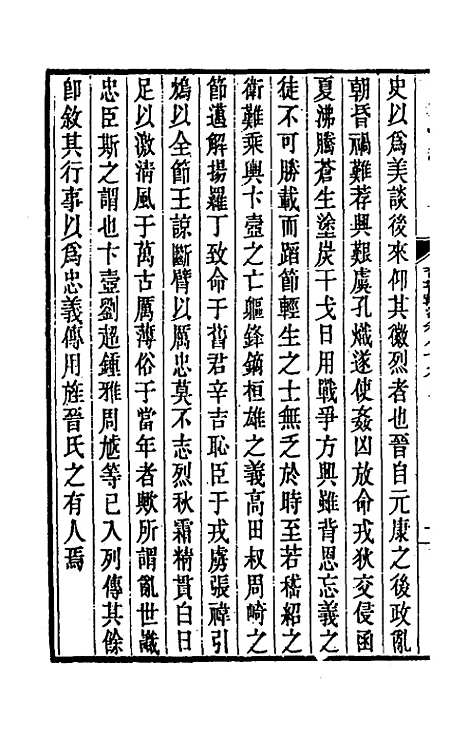 史以爲美談後來仰其徽烈者也晉自元康之後政亂
朝昏禍難荐興艱虞孔熾遂使姦凶放命戎狄交侵函
夏沸騰蒼生塗炭干戈日用戰爭方興雖背恩忘義之
徒不可勝載而蹈節輕生之士無乏於時至若嵇紹之
衛難乘輿卞壼之亡軀鋒鏑桓雄之義高田叔周崎之
節邁解揚羅丁致命于舊君辛吉恥臣于戎虜張褘引
鴆以全節王諒斷臂以厲忠莫不志烈秋霜精貫白日
足以激清風于萬古厲薄俗于當年者歟所謂亂世識
忠臣斯之謂也卞壼劉超鍾雅周虓等已入列傳其餘
卽敘其行事以爲忠義傳用旌晉氏之有人焉